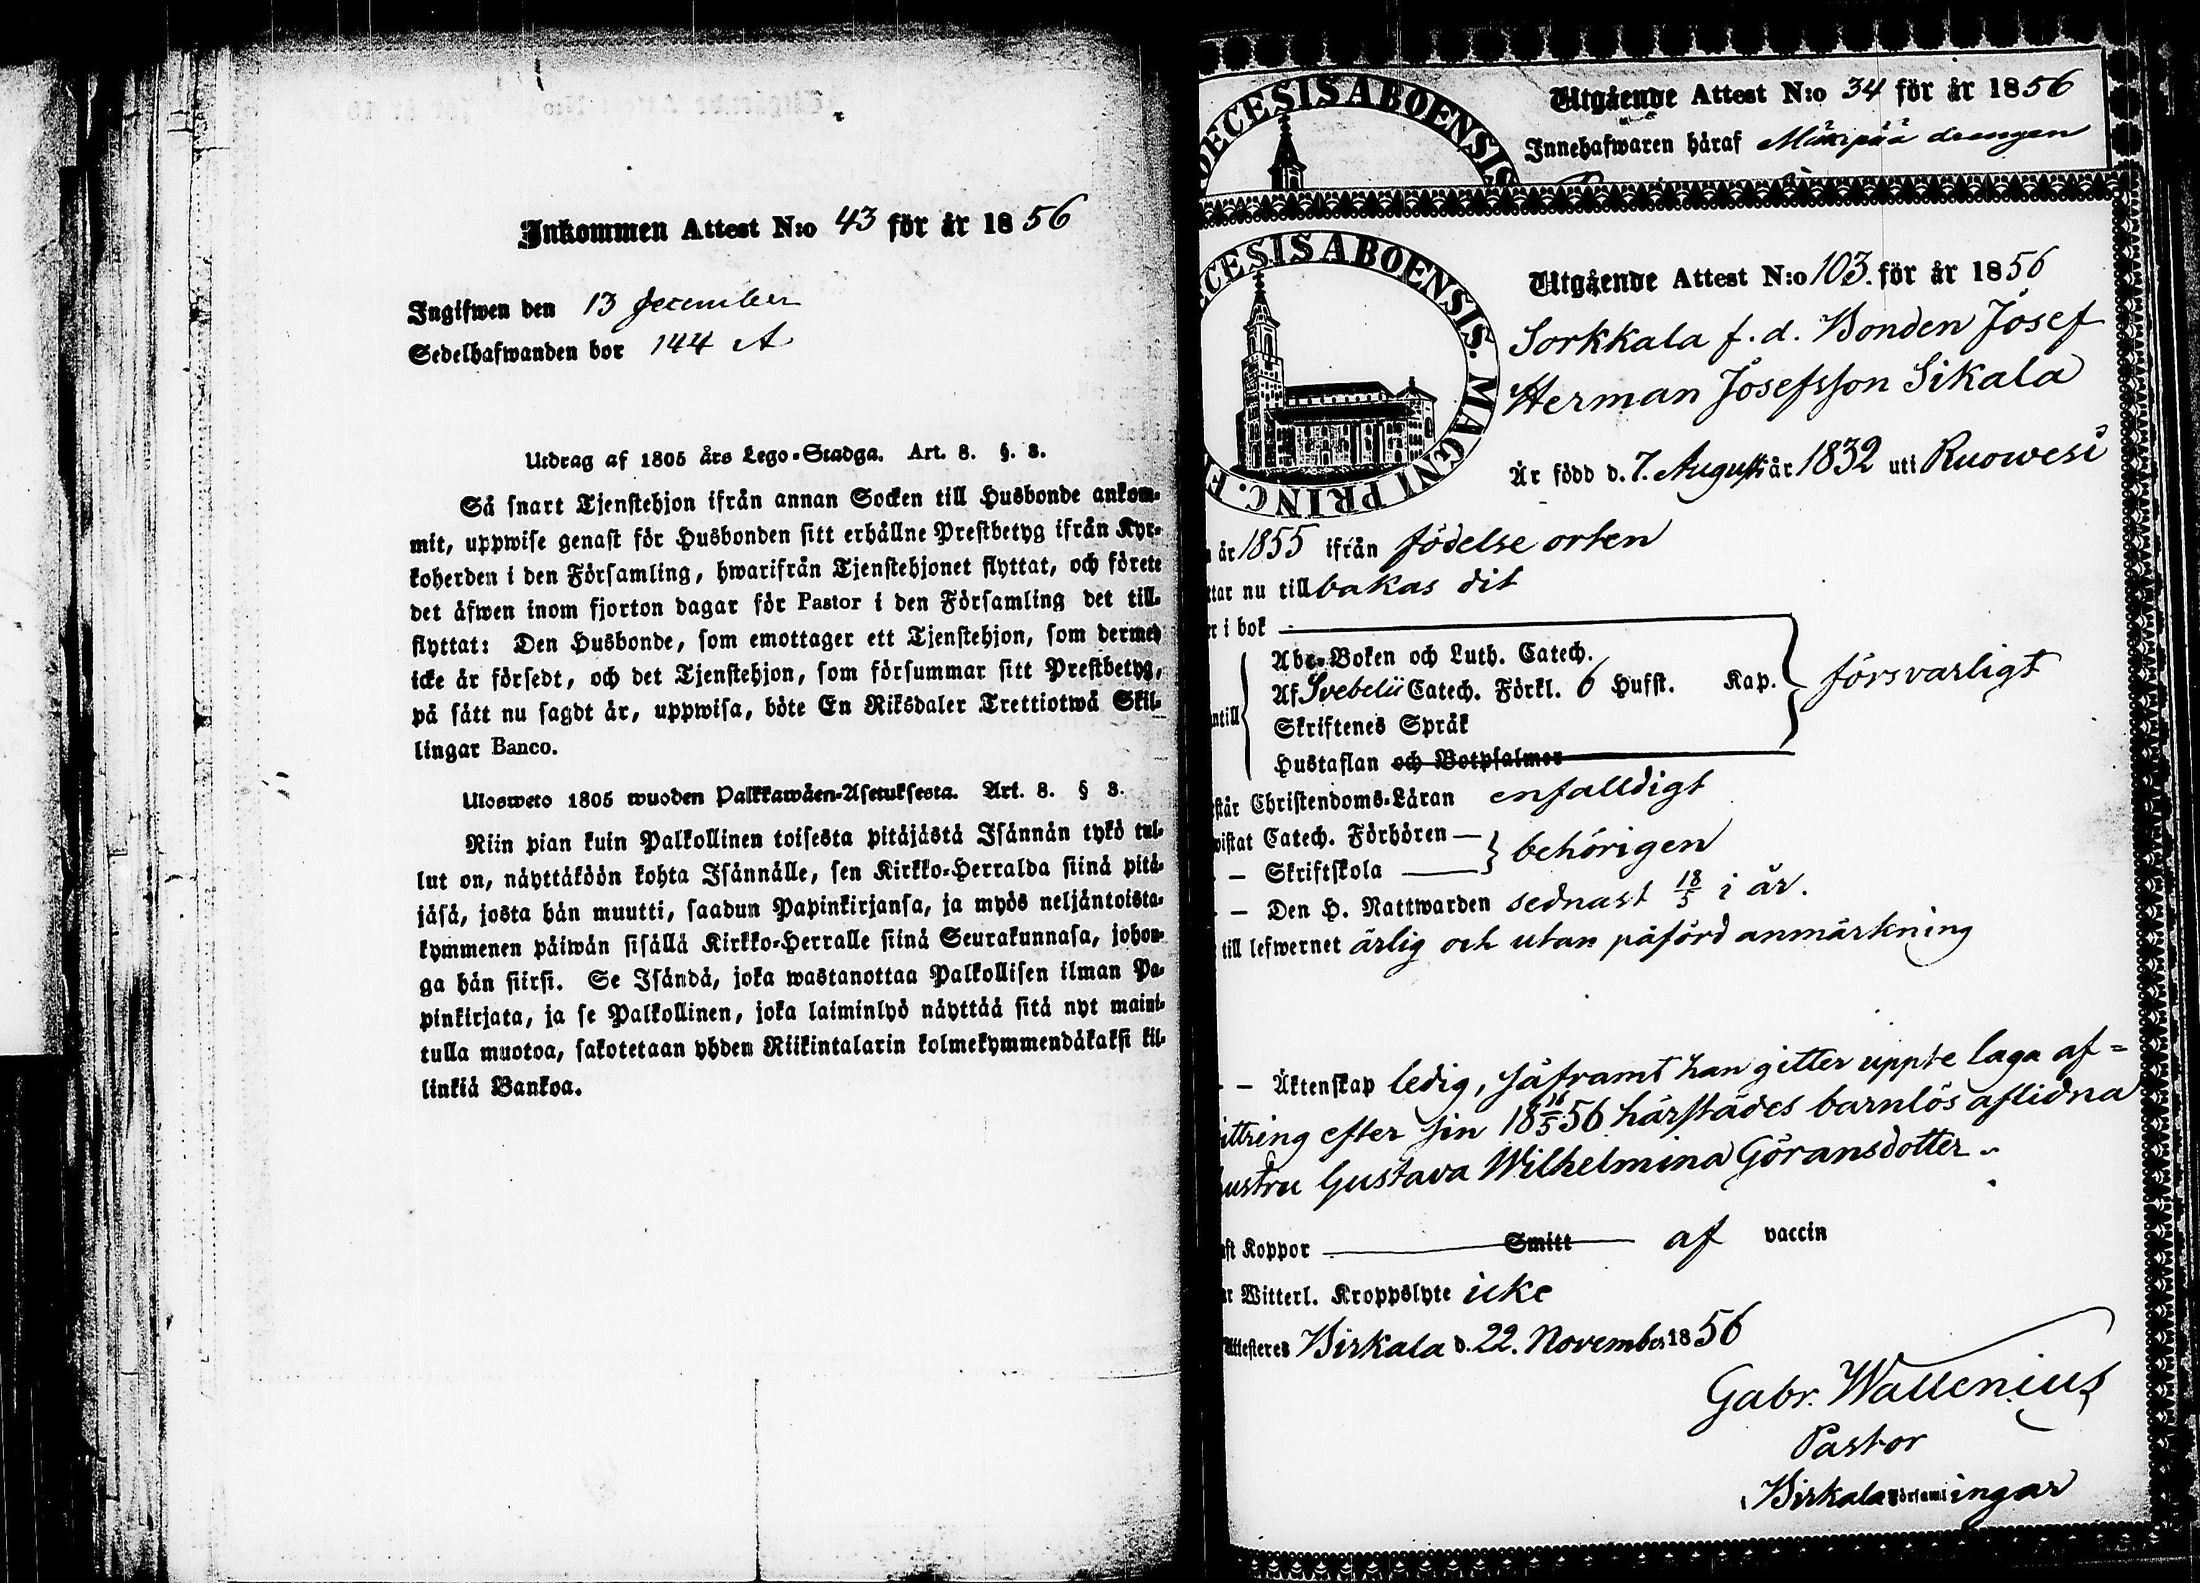 Inkommen Attest N:o 43 för år 1856
Ingifwen den 13 December
Sedelhafwanden bor 144 A
Utdrag af 1805 års Lego-Stadga. Art. 8. §. 8.
Så snart Tjenstehjon ifrån annan Socken till Husbonde ankom-
mit, uppwise genast för Husbonden sitt erhållne Prestbetyg ifrån Kyr-
koherden i den Församling, hwarifrån Tjenstehjonet flyttat, och förete
det äfwen inom fjorton dagar för Pastor i den Församling det till-
flyttat: Den Husbonde, som emottager ett Tjenstehjon, som dermed
icke är försedt, och det Tjenstehjon, som försummar sitt Prestbetyg,
på sätt nu sagdt är, uppwisa, böte En Riksdaler Trettiotwå Skil-
lingar Banco.
Ulosweto 1805 wuoden Palkkawäen-Asetuksesta. Art. 8. § 8.
Niin pian kuin Palkollinen toisesta pitäjästä Isännän tykö tul-
lut on, näyttäköön kohta Isännälle, sen Kirkko-Herralda siinä pitä-
jäsä, josta hän muutti, saadun Papinkirjansa, ja myös neljäntoista-
kymmenen päiwän sisällä Kirkko-Herralle siinä Seurakunnasa, johon-
ga hän siirsi. Se Isändä, joka wastanottaa Palkollisen ilman Pa-
pinkirjata, ja se Palkollinen, joka laiminlyö näyttää sitä nyt maini-
tulla muotoa, sakotetaan yhden Riikintalarin kolmekymmendäkaksi kil-
linkiä Bankoa.
DECESIS ABOENSIS
Utgående Attest N:o 34 för år 1856
Innehafwaren häraf drengen
CESIS ABOENSIS. MAGNI PRINC. F
Utgående Attest N:o 103. för år 1856
Sorkkala f. d. Bonden Josef
Herman Josefsson Sikala
Är född d. 7. Augusti år 1832 uti Ruowesi
år 1855 ifrån födelse orten
ttar nu till bakas dit
r i bok
Abc-Boken och Luth. Catech.
Af Svebelii Catech. Förkl. 6 Hufst. Kap. försvarligt
ntill
Skriftenes Språk
Hustaflan och Botpsalmer
står Christendoms-Läran enfalldigt
vistat Catech. Förhören — behörigen
— Skriftskola
— Den H. Nattwarden sednast 18/5 i år.
till lefwernet ärlig och utan påförd anmärkning
— Äktenskap ledig, såframt han gitter uppte laga af=
ittring efter sin 18 16/5 56 härstädes barnlös aflidna
ustru Gustava Wilhelmina Göransdotter.
ft Koppor Smitt af vaccin
r Witterl. Kroppslyte icke
Attesteres Birkala d. 22. November 1856
Gabr. Wallenius
Pastor
i Birkala Församlingar